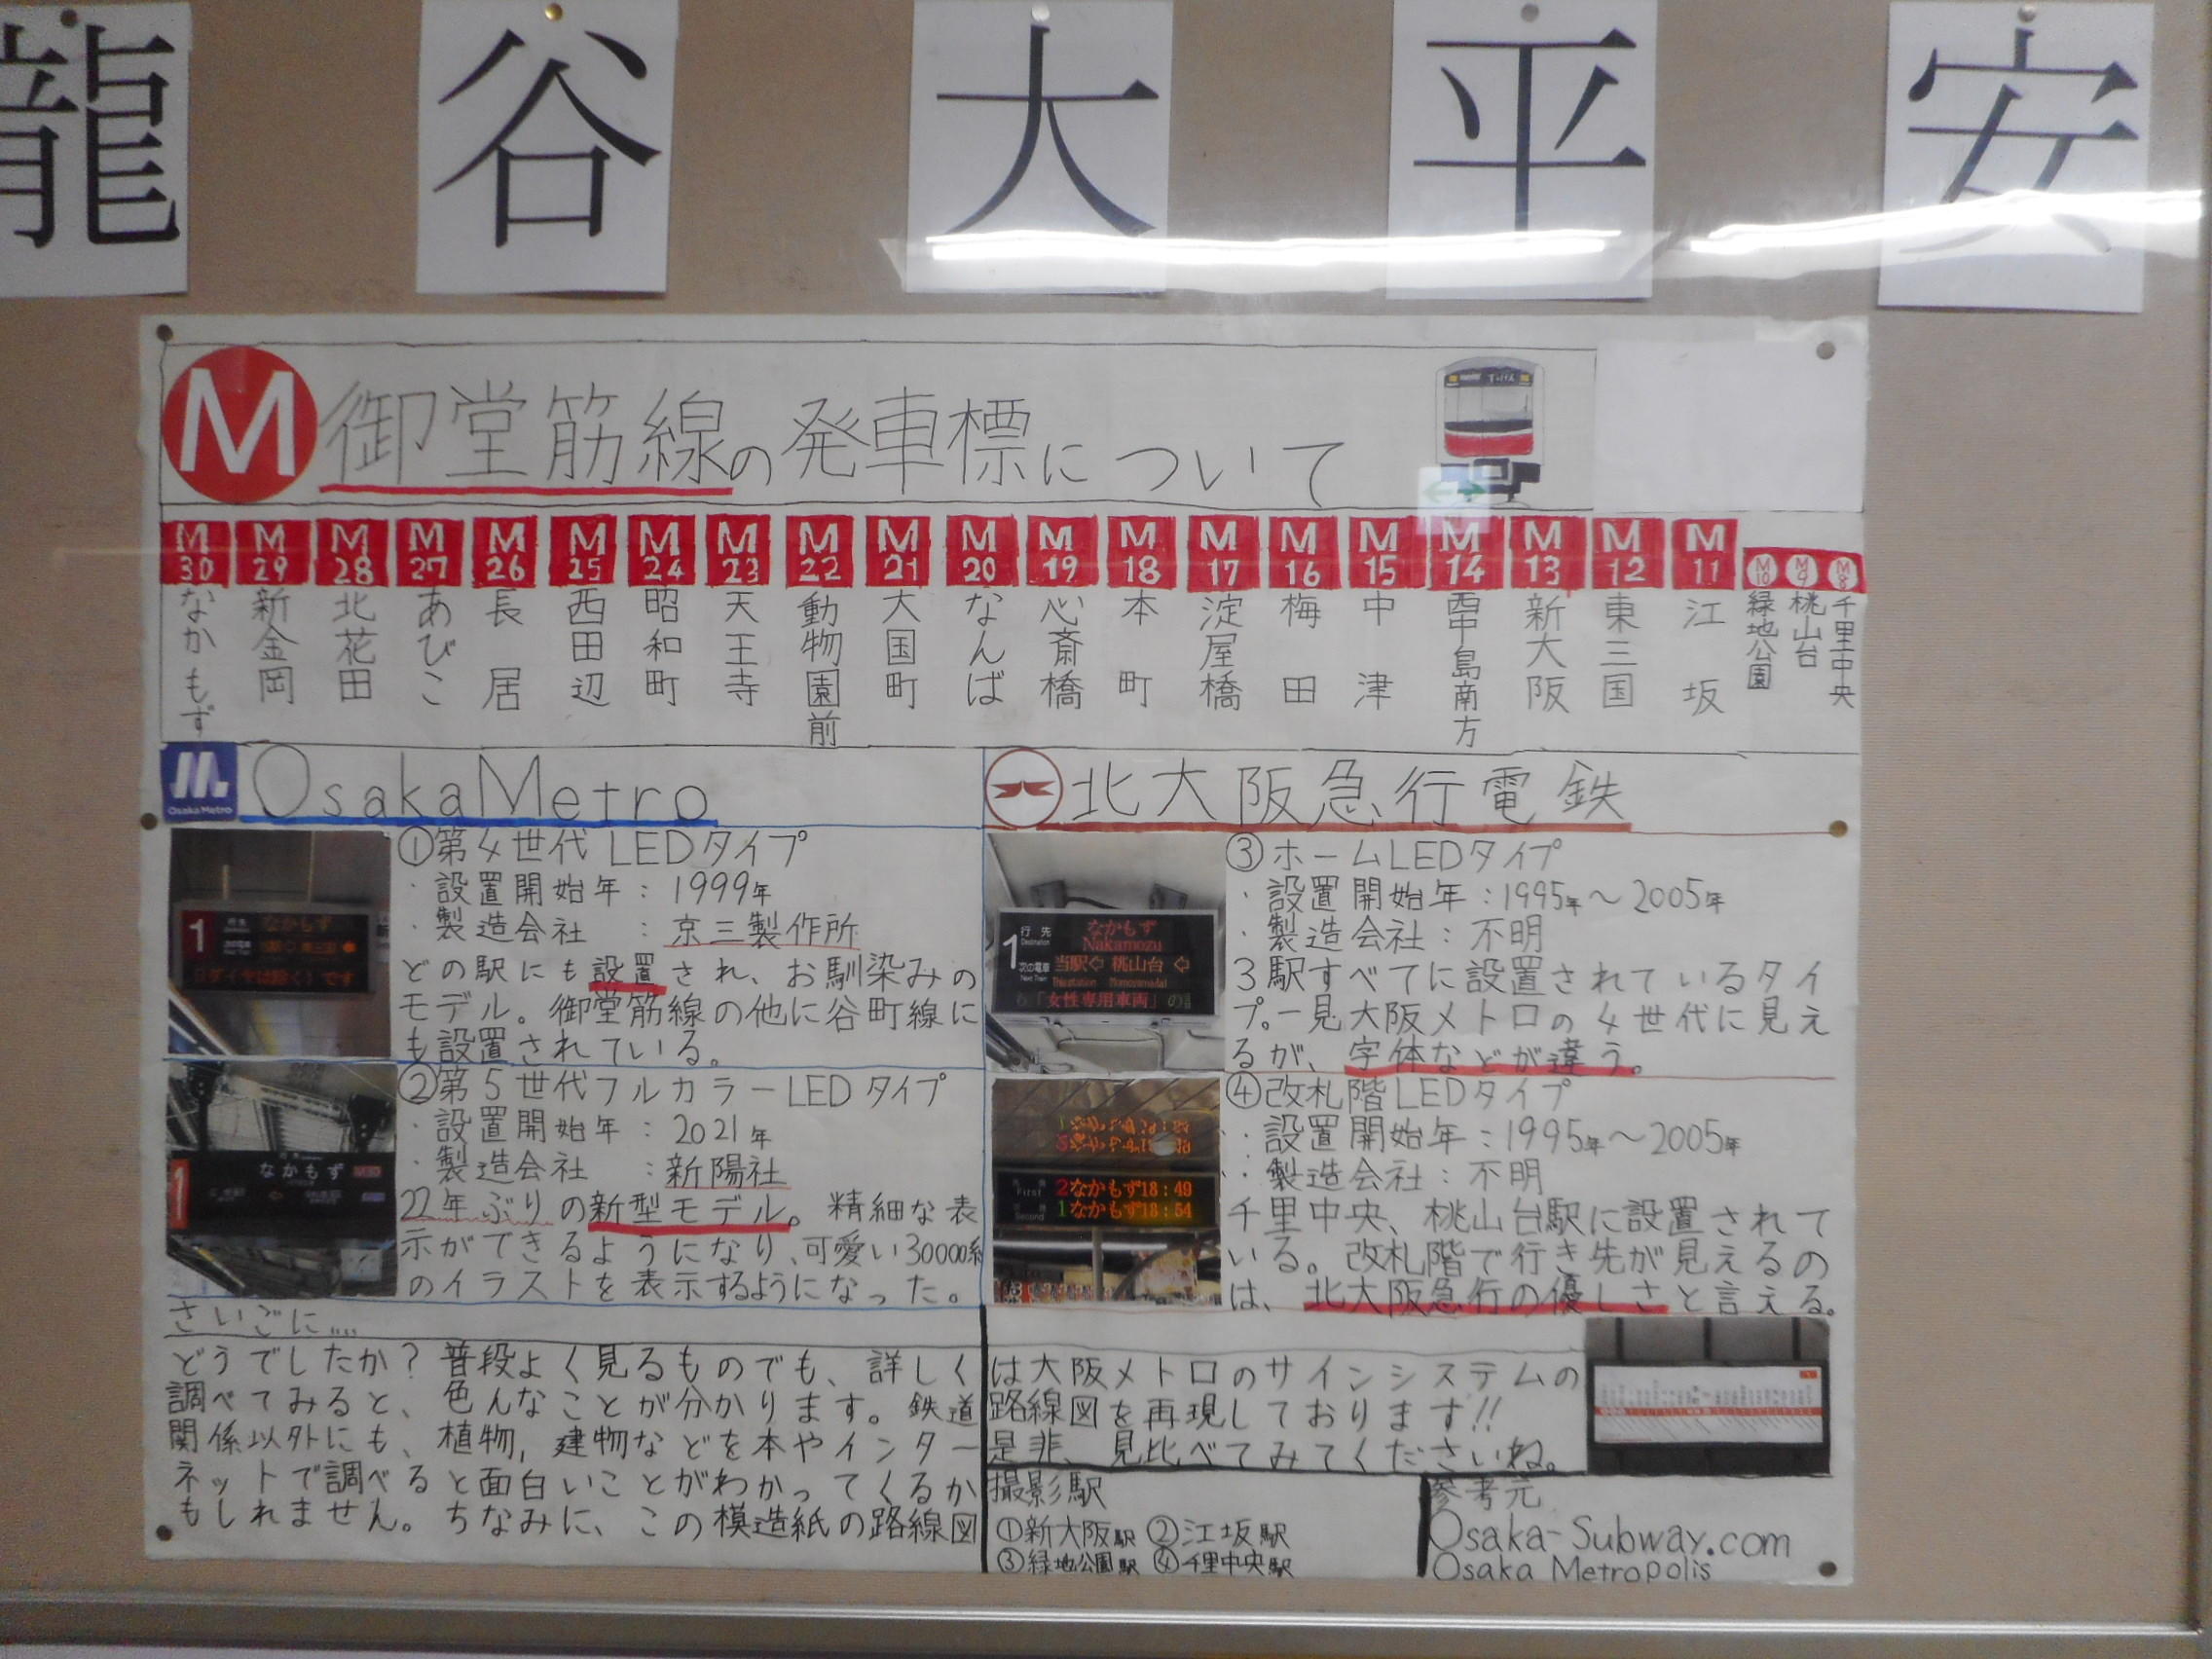 龍谷大平安
M 御堂筋線の発車標について
M30 なかもず
M29 新金岡
M28 北花田
M27 あびこ
M26 長居
M25 西田辺
M24 昭和町
M23 天王寺
M22 動物園前
M21 大国町
M20 なんば
M19 心斎橋
M18 本町
M17 淀屋橋
M16 梅田
M15 中津
M14 西中島南方
M13 新大阪
M12 東三国
M11 江坂
M10 緑地公園
M9 桃山台
M8 千里中央
Osaka Metro
OsakaMetro
1
なかもず
(ダイヤは除く)です
①第4世代LEDタイプ
・設置開始年:1999年
・製造会社 :京三製作所
どの駅にも設置され、お馴染みの
モデル。御堂筋線の他に谷町線に
も設置されている。
1
なかもず
②第5世代フルカラーLEDタイプ
・設置開始年:2021年
・製造会社 :新陽社
22年ぶりの新型モデル。精細な表
示ができるようになり、可愛い30000系
のイラストを表示するようになった。
北大阪急行電鉄
1
行先
なかもず
Nakamozu
次の電車
当駅⇦ 桃山台⇦
「女性専用車両」の
③ホームLEDタイプ
・設置開始年:1995年〜2005年
・製造会社:不明
3駅すべてに設置されているタイ
プ。一見大阪メトロの4世代に見え
るが、字体などが違う。
First 2なかもず18:49
Second 1なかもず18:54
④改札階LEDタイプ
・設置開始年:1995年〜2005年
・製造会社:不明
千里中央、桃山台駅に設置されて
いる。改札階で行き先が見えるの
は、北大阪急行の優しさと言える。
さいごに....
どうでしたか?普段よく見るものでも、詳しく
調べてみると、色んなことが分かります。鉄道
関係以外にも、植物,建物などを本やインター
ネットで調べると面白いことがわかってくるか
もしれません。ちなみに、この模造紙の路線図
は大阪メトロのサインシステムの
路線図を再現しております!!
是非、見比べてみてくださいね。
撮影駅
①新大阪駅 ②江坂駅
③緑地公園駅 ④千里中央駅
参考元
Osaka-Subway.com
Osaka Metropolis